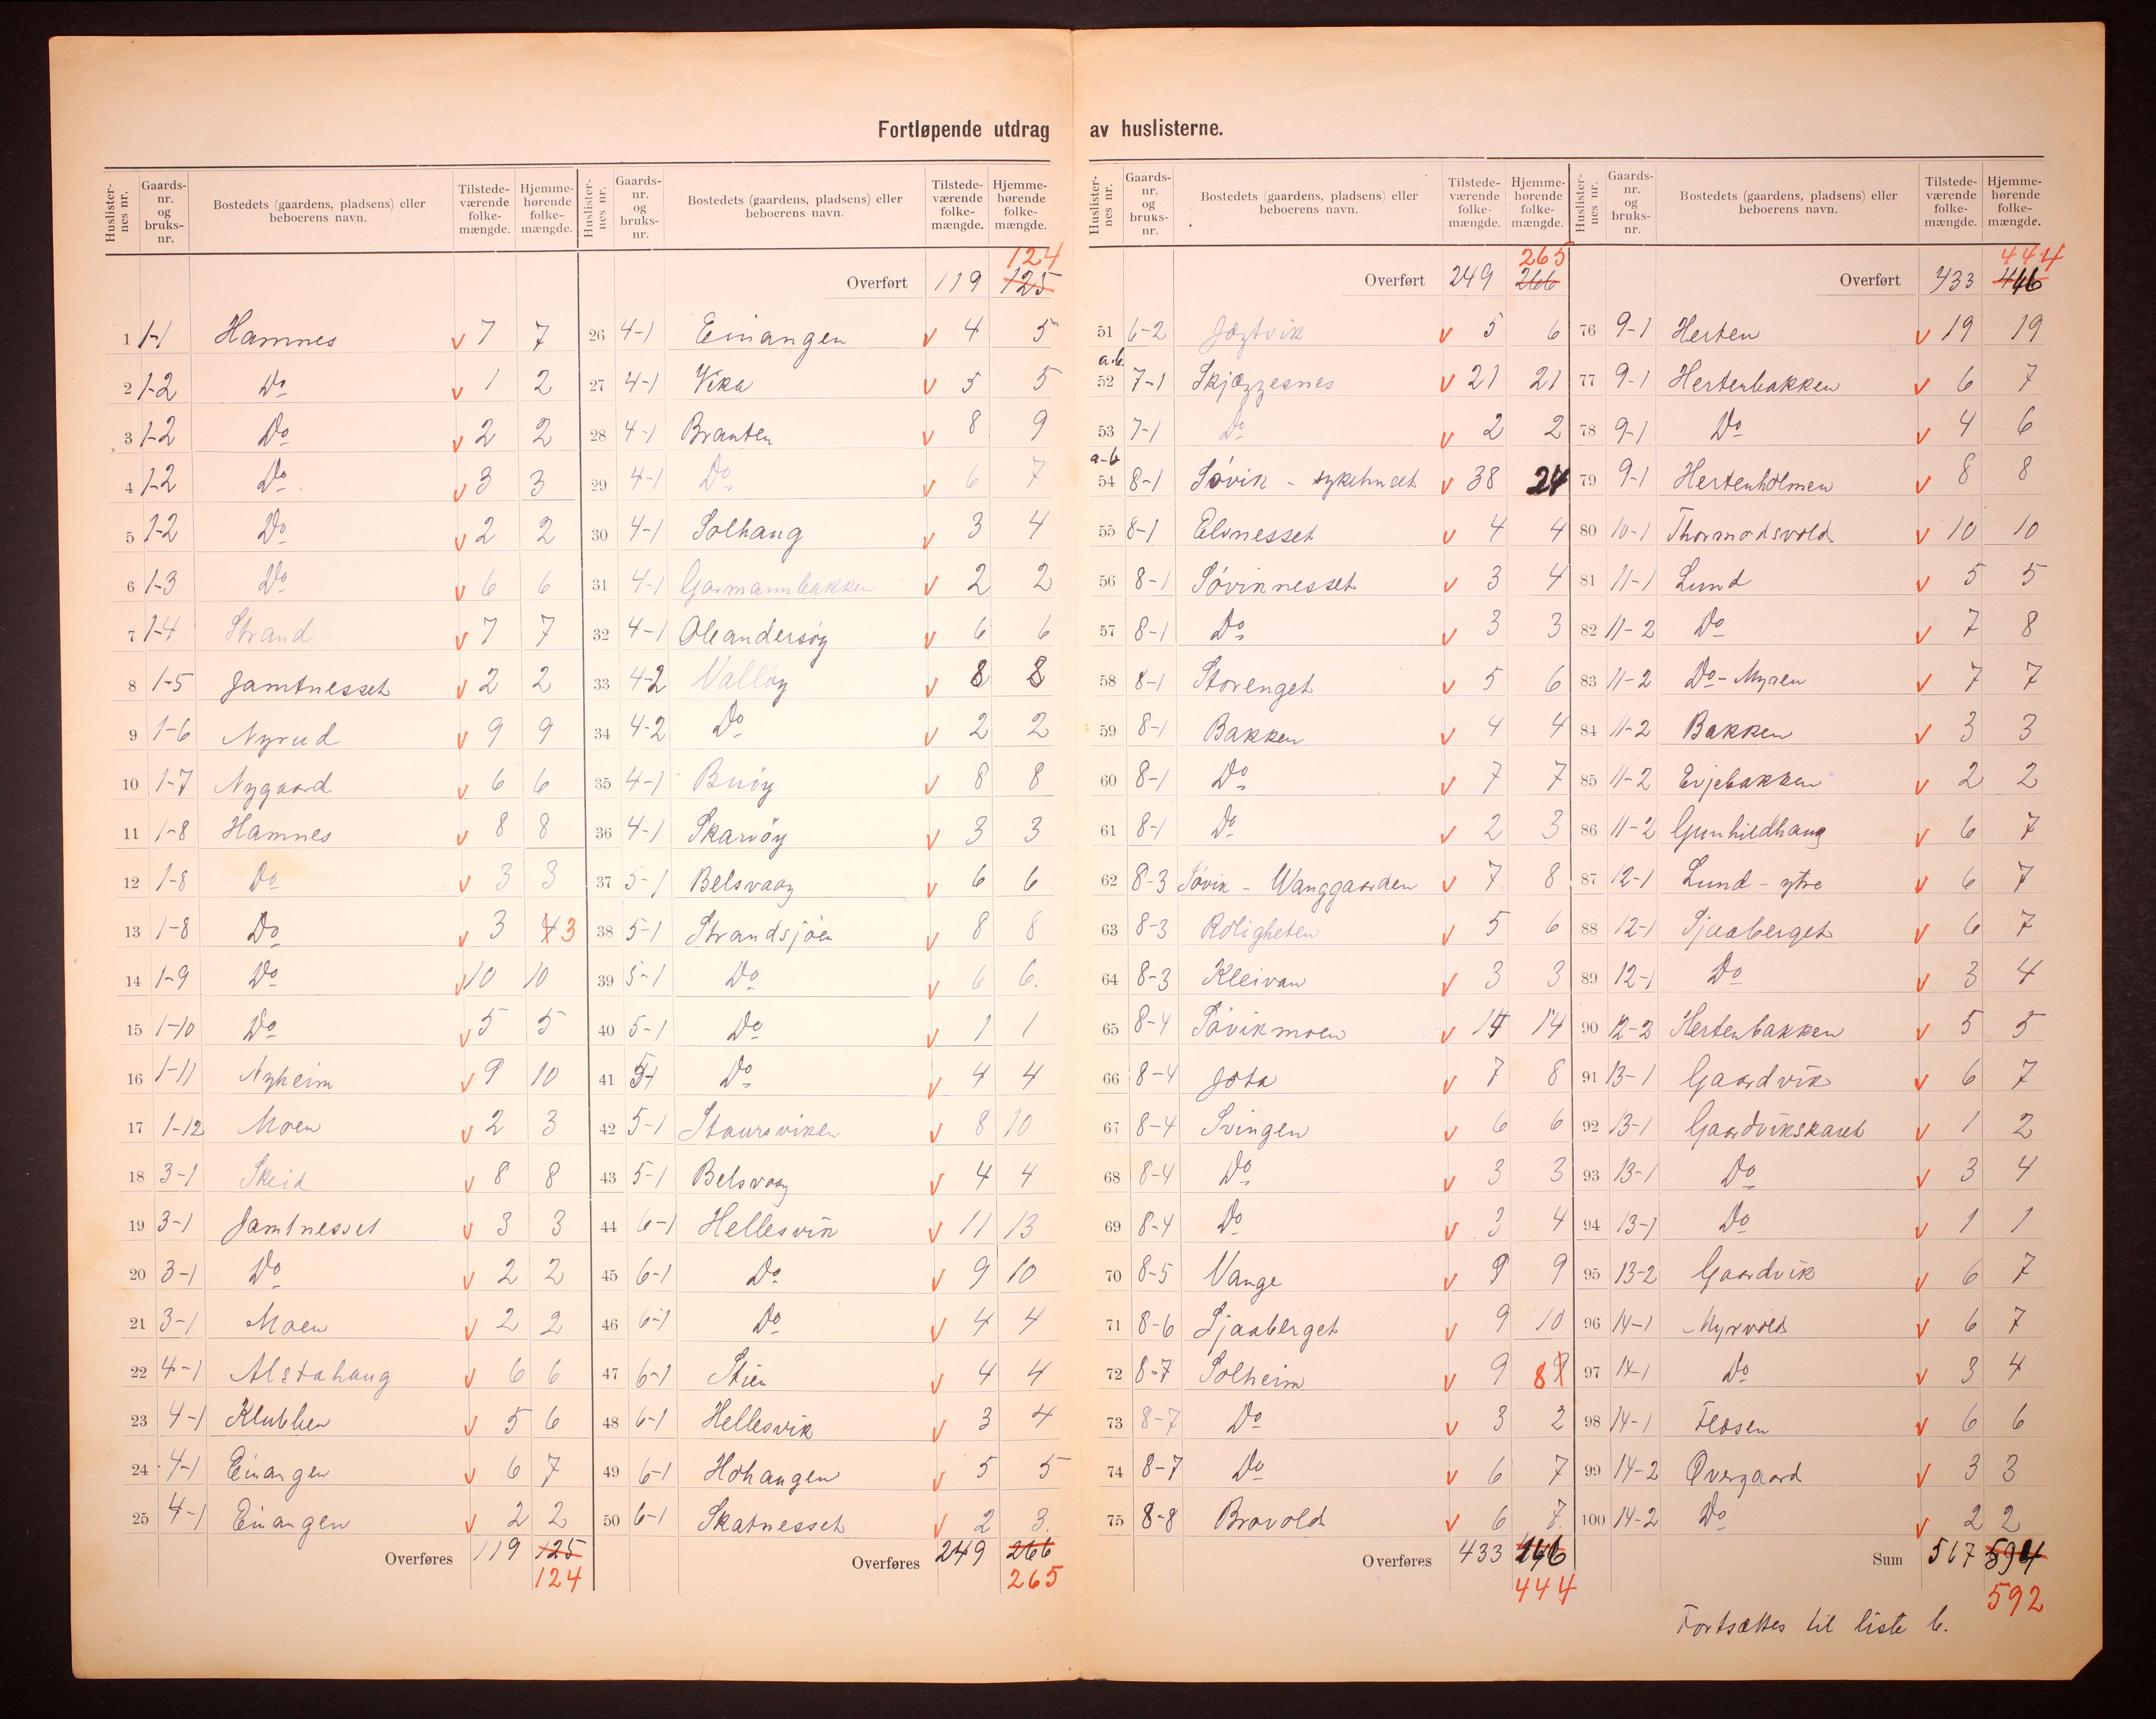 Fortløpende utdrag av huslisterne.
Huslister-nes nr. Gaards-nr. og bruks-nr. Bostedets (gaardens, pladsens) eller beboerens navn. Tilstede-værende folke-mængde. Hjemme-hørende folke-mængde.
1 1-1 Hamnes v 7 7
2 1-2 Do v 1 2
3 1-2 Do v 2 2
4 1-2 Do v 3 3
5 1-2 Do v 2 2
6 1-3 Do v 6 6
7 1-4 Strand v 7 7
8 1-5 Jamtnesset v 2 2
9 1-6 Nyrud v 9 9
10 1-7 Nygaard v 6 6
11 1-8 Hamnes v 8 8
12 1-8 Do v 3 3
13 1-8 Do v 3 4 3
14 1-9 Do v 10 10
15 1-10 Do v 5 5
16 1-11 Nyheim v 9 10
17 1-12 Moen v 2 3
18 3-1 Skeid v 8 8
19 3-1 Jamtnesset v 3 3
20 3-1 Do v 2 2
21 3-1 Moen v 2 2
22 4-1 Alstahaug v 6 6
23 4-1 Klubben v 5 6
24 4-1 Einangen v 6 7
25 4-1 Einangen v 2 2
Overføres 119 125
124
Huslister-nes nr. Gaards-nr. og bruks-nr. Bostedets (gaardens, pladsens) eller beboerens navn. Tilstede-værende folke-mængde. Hjemme-hørende folke-mængde.
124
Overført 119 125
26 4-1 Einangen v 4 5
27 4-1 Vika v 5 5
28 4-1 Branten v 8 9
29 4-1 Do v 6 7
30 4-1 Solhaug v 3 4
31 4-1 Garmannbakken v 2 2
32 4-1 Oleandersøy v 6 6
33 4-2 Valløy v 8 8
34 4-2 Do v 2 2
35 4-1 Buøy v 8 8
36 4-1 Skarvøy v 3 3
37 5-1 Belsvaag v 6 6
38 5-1 Strandsjøen v 8 8
39 5-1 Do v 6 6.
40 5-1 Do v 1 1
41 5-1 Do v 4 4
42 5-1 Staursviken v 8 10
43 5-1 Belsvaag v 4 4
44 6-1 Hellesvik v 11 13
45 6-1 Do v 9 10
46 6-1 Do v 4 4
47 6-1 Stien v 4 4
48 6-1 Hellesvik v 3 4
49 6-1 Hohaugen v 5 5
50 6-1 Skatnesset v 2 3.
Overføres 249 266
265
Huslister-nes nr. Gaards-nr. og bruks-nr. Bostedets (gaardens, pladsens) eller beboerens navn. Tilstede-værende folke-mængde. Hjemme-hørende folke-mængde.
265
Overført 249 266
51 6-2 Jøgtvik v 5 6
a-b.
52 7-1 Skjæggesnes v 21 21
53 7-1 Do v 2 2
a-b
54 8-1 Søvik - sykehuset v 38 24
55 8-1 Elvnesset v 4 4
56 8-1 Søviknesset v 3 4
57 8-1 Do v 3 3
58 8-1 Storenget v 5 6
59 8-1 Bakken v 4 4
60 8-1 Do v 7 7
61 8-1 Do v 2 3
62 8-3 Søvik - Wanggaarden v 7 8
63 8-3 Roligheten v 5 6
64 8-3 Kleivan v 3 3
65 8-4 Søvikmoen v 14 14
66 8-4 Jota v 7 8
67 8-4 Svingen v 6 6
68 8-4 Do v 3 3
69 8-4 Do v 3 4
70 8-5 Vange v 9 9
71 8-6 Sjaaberget v 9 10
72 8-7 Solheim v 9 8 9
73 8-7 Do v 3 2
74 8-7 Do v 6 7
75 8-8 Brovold v 6 7.
Overføres 433 446
444
Huslister-nes nr. Gaards-nr. og bruks-nr. Bostedets (gaardens, pladsens) eller beboerens navn. Tilstede-værende folke-mængde. Hjemme-hørende folke-mængde.
444
Overført 433 446
76 9-1 Herten v 19 19
77 9-1 Hertenbakken v 6 7
78 9-1 Do v 4 6
79 9-1 Hertenholmen v 8 8
80 10-1 Thormodsvold v 10 10
81 11-1 Lund v 5 5
82 11-2 Do v 7 8
83 11-2 Do - Myren v 7 7
84 11-2 Bakken v 3 3
85 11-2 Evjebakken v 2 2
86 11-2 Gunhildhaug v 6 7
87 12-1 Lund - ytre v 6 7
88 12-1 Sjaaberget v 6 7
89 12-1 Do v 3 4
90 12-2 Hertenbakken v 5 5
91 13-1 Gaardvik v 6 7
92 13-1 Gaardvikskaret v 1 2
93 13-1 Do v 3 4
94 13-1 Do v 1 1
95 13-2 Gaardvik v 6 7
96 14-1 Myrvold v 6 7
97 14-1 Do v 3 4
98 14-1 Flosen v 6 6
99 14-2 Øvergaard v 3 3
100 14-2 Do v 2 2
Sum 567 594
592
Fortsættes til liste b.